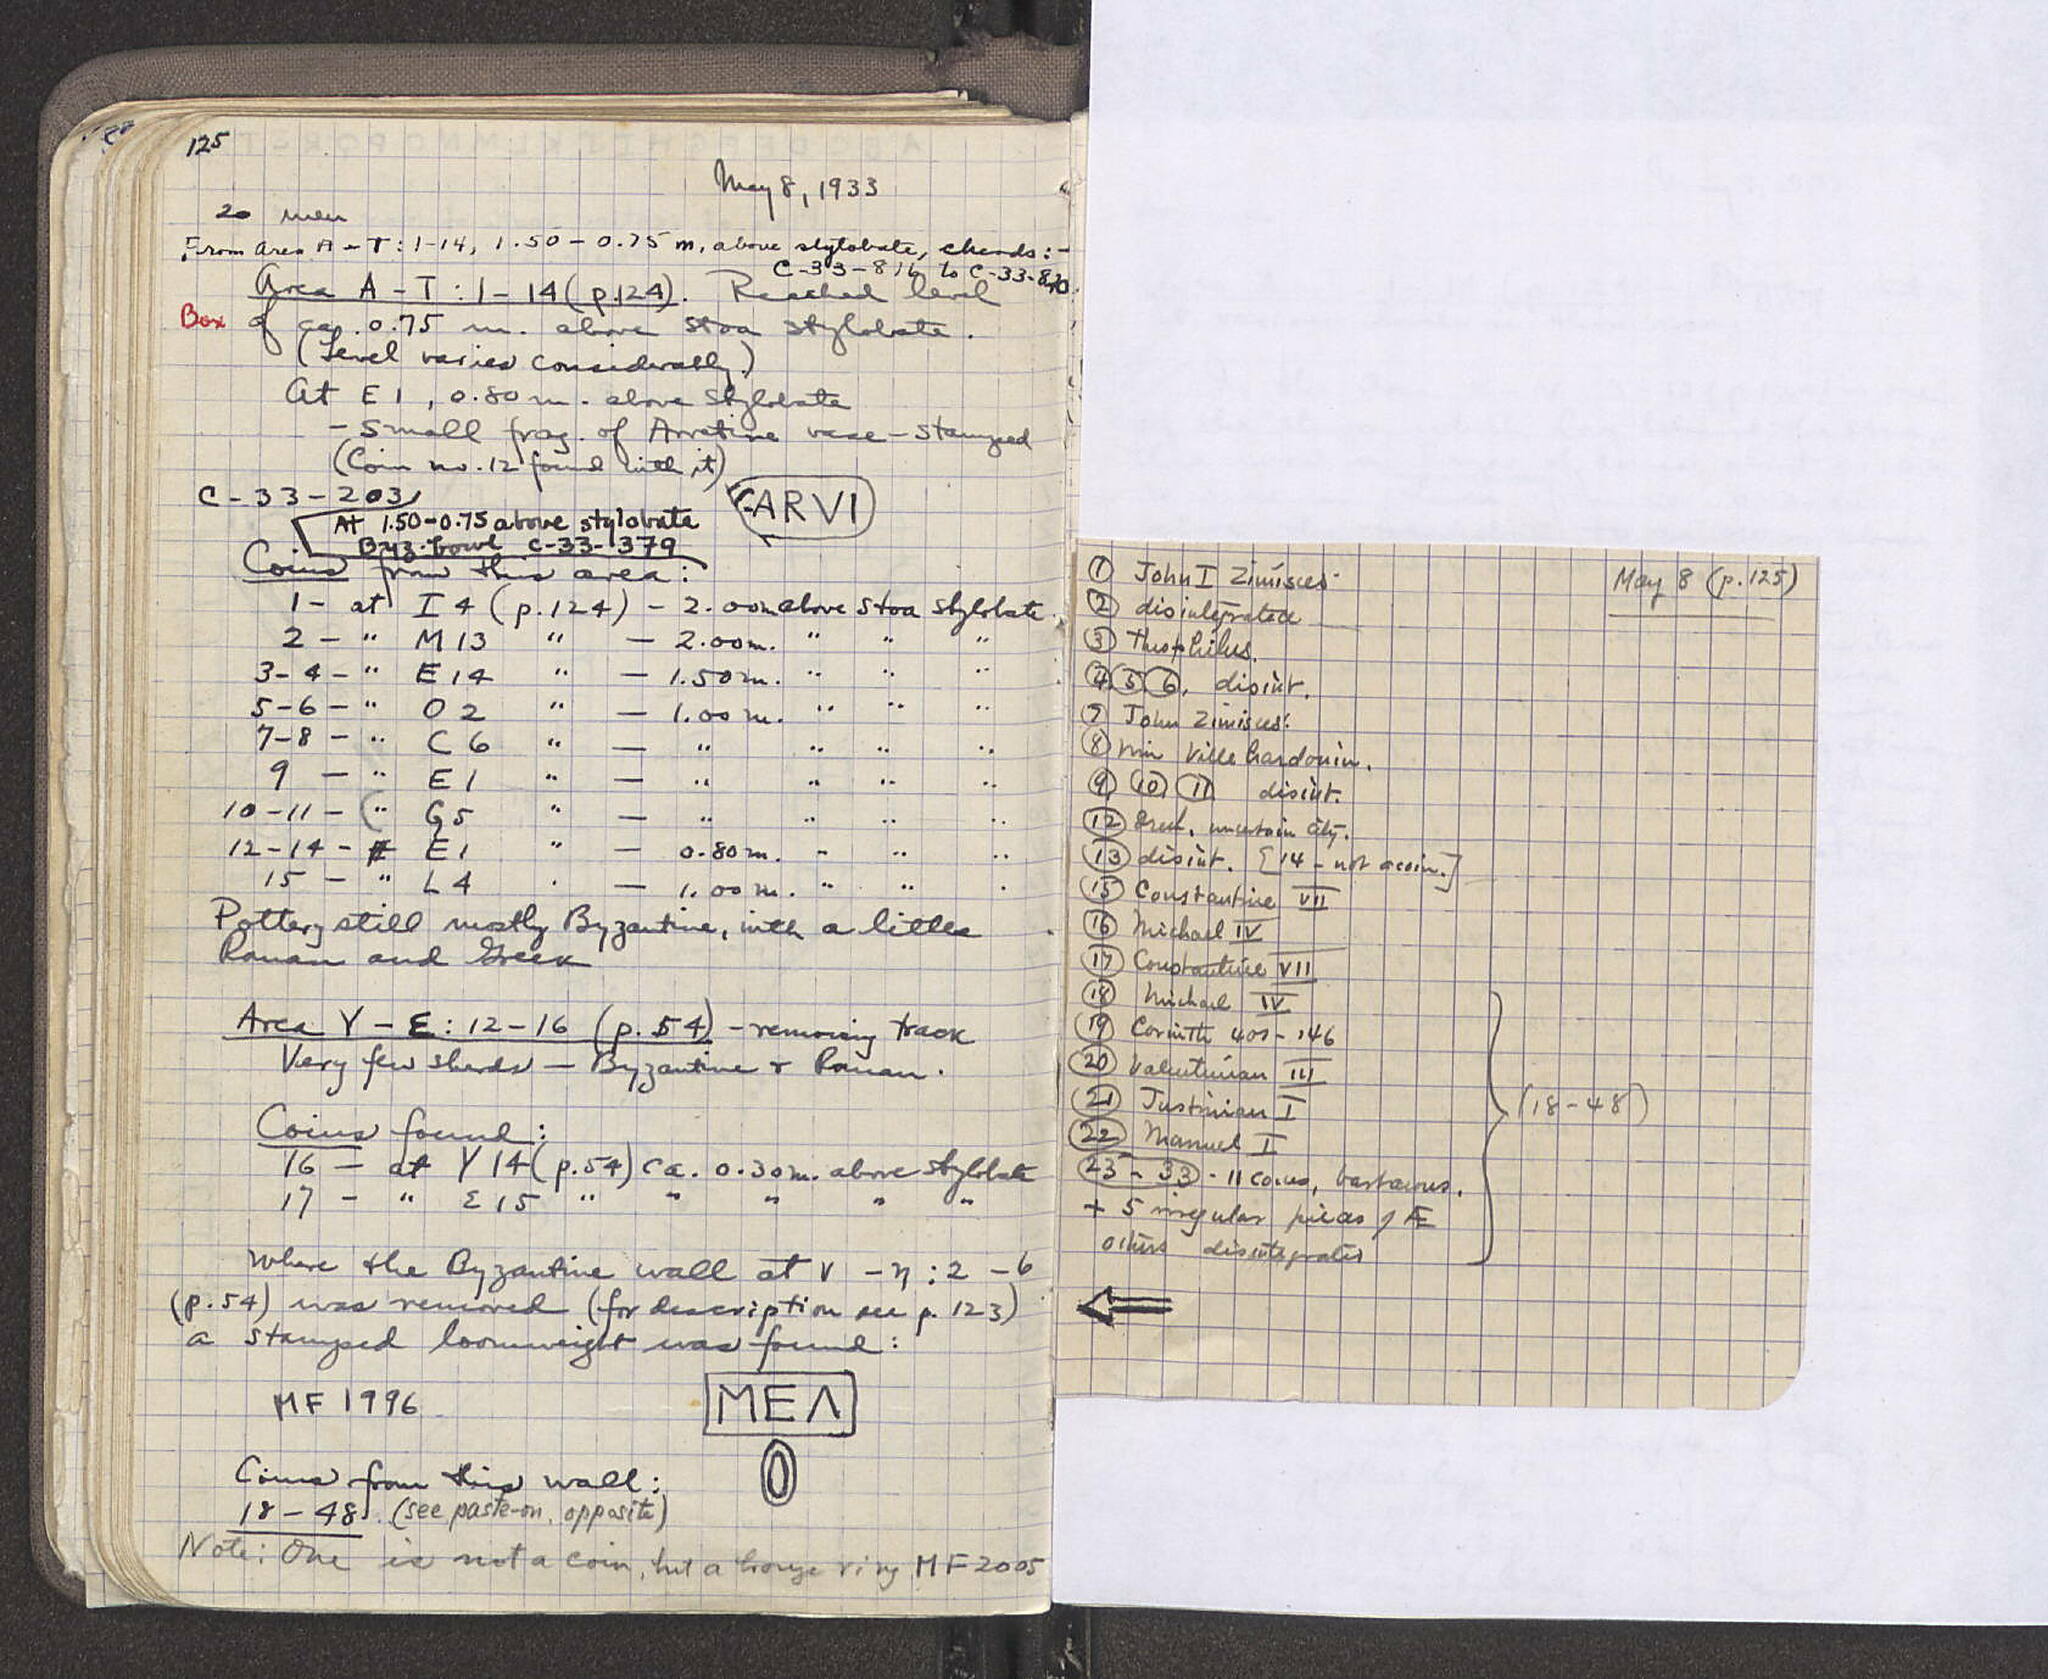 125
May 8, 1933
20 men
From area A-T: 1-14, 1.50-0.75 m. above stylobate, sherds:-
C-33-816 to C-33-830
Area A-T: 1-14 (p.124). Reached level
Box of ca. 0.75 m. above stoa stylobate.
(Level varies considerably)
At E1, 0.80 m. above stylobate
- small frag. of Arretine vase - stamped
(Coin no. 12 found with it)
C-33-203
CARVI
At 1.50-0.75 above stylobate
Byz. bowl C-33-379
Coins from this area:
1- at I4 (p.124) - 2.00m above stoa stylobate.
2 - " M13 " - 2.00m. " " "
3-4 - " E14 " - 1.50m. " " "
5-6 - " O2 " - 1.00m. " " "
7-8 - " C6 " - " " " "
9 - " E1 " - " " " "
10-11 - " G5 " - " " " "
12-14 - E1 " - 0.80m. " " "
15 - " L4 " - 1.00m. " " "
Pottery still mostly Byzantine, with a little
Roman and Greek
Area Y-Ε: 12-16 (p.54) - removing track
Very few sherds - Byzantine & Roman.
Coins found:
16 - at Y14 (p.54) ca. 0.30m. above stylobate
17 - " Σ15 " " " " "
Where the Byzantine wall at ν-η: 2-6
(p.54) was removed (for description see p. 123)
a stamped loomweight was found:
MF 1996
ΜΕΛ
Coins from this wall:
18-48. (see paste-on, opposite)
Note: One is not a coin, but a bronze ring MF2005
May 8 (p.125)
① John I Zimisces
② disintegrated
③ Theophilus.
④ ⑤ ⑥, disint.
⑦ John Zimisces.
⑧ Wm Villehardouin.
⑨ ⑩ ⑪ disint.
⑫ Greek, uncertain city.
⑬ disint. [14 - not a coin.]
⑮ Constantine VII
⑯ Michael IV
⑰ Constantine VII
⑱ Michael IV
⑲ Corinth 400-146
⑳ Valentinian III
㉑ Justinian I
㉒ Manuel I
(18-48)
23-33 - 11 coins, barbarous.
+ 5 irregular pieces of Æ
others disintegrated